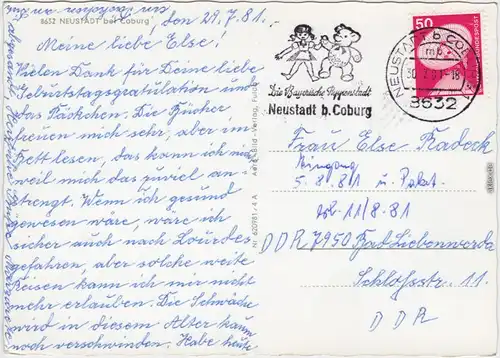 8632 NEUSTADT bei Coburg, den 29.7.81.
Meine liebe Else!
Vielen Dank für Deine liebe
Geburtstagsgratulation und
das Päckchen. Die Bücher
freuen mich sehr, aber im
Bett lesen, das kann ich nicht
weil mich das zuviel an-
strengt. Wenn ich gesund
gewesen wäre, wäre ich
sicher auch nach Lourdes
gefahren, aber solche weite
Reisen kann ich mir nicht
mehr erlauben. Die Schwäche
wird in diesem Alter kaum
noch verschwinden. Habe heute
Nr. 620781/4 A Aero-Bild-Verlag, Fulda
Die Bayerische Puppenstadt
Neustadt b. Coburg
NEUSTADT b COBURG
mb
30.7.81-18
8632
50
DEUTSCHE BUNDESPOST
Frau Else Radeck
Eingang
5.8.81 u. Paket
11/8.81
DDR 7950 Bad Liebenwerda
Schlossstr. 11
DDR